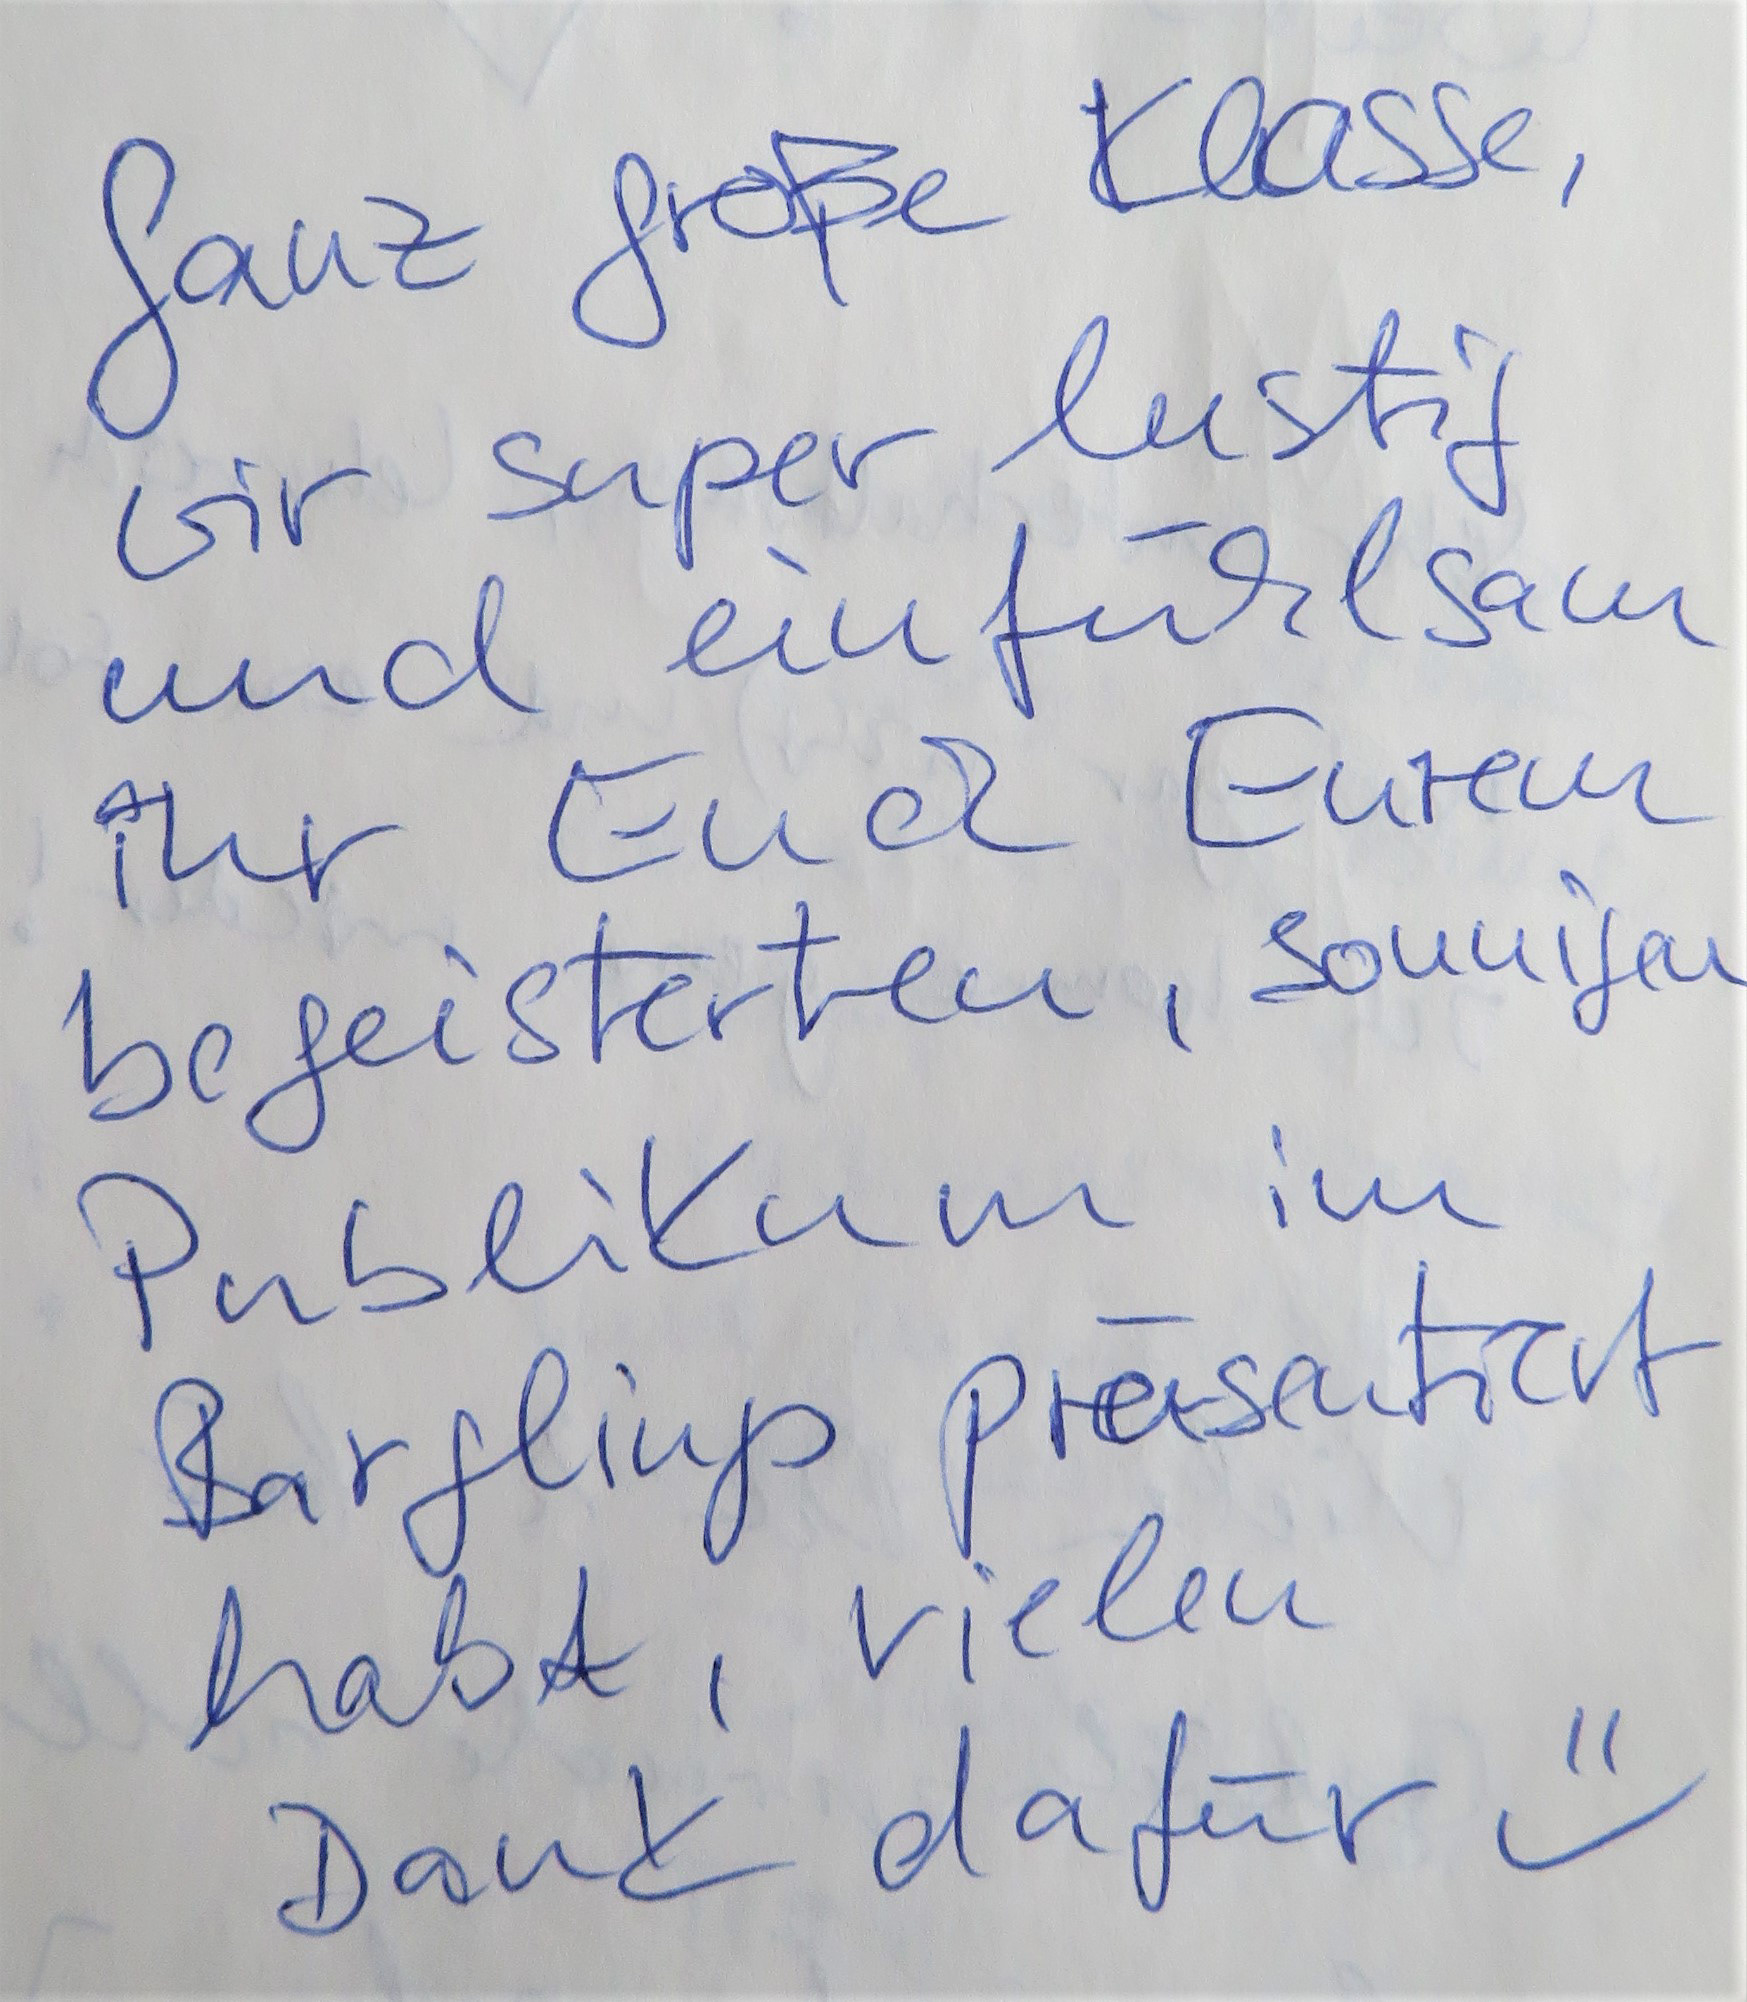 Ganz große Klasse,
wir super lustig
und einfühlsam
ihr Euch Eurem
begeisterten, sonnigen
Publikum im
Barglinp präsentiert
habt, vielen
Dank dafür